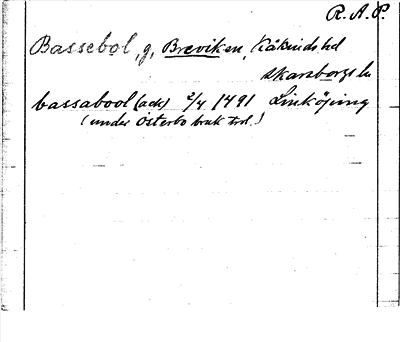 R. A. P.
Bassebol, g, Breviken, Kåkinds hd
Skaraborgs l.
bassabool (ack) 2/4 1491 Linköping
(under Österbo bruk trol.)